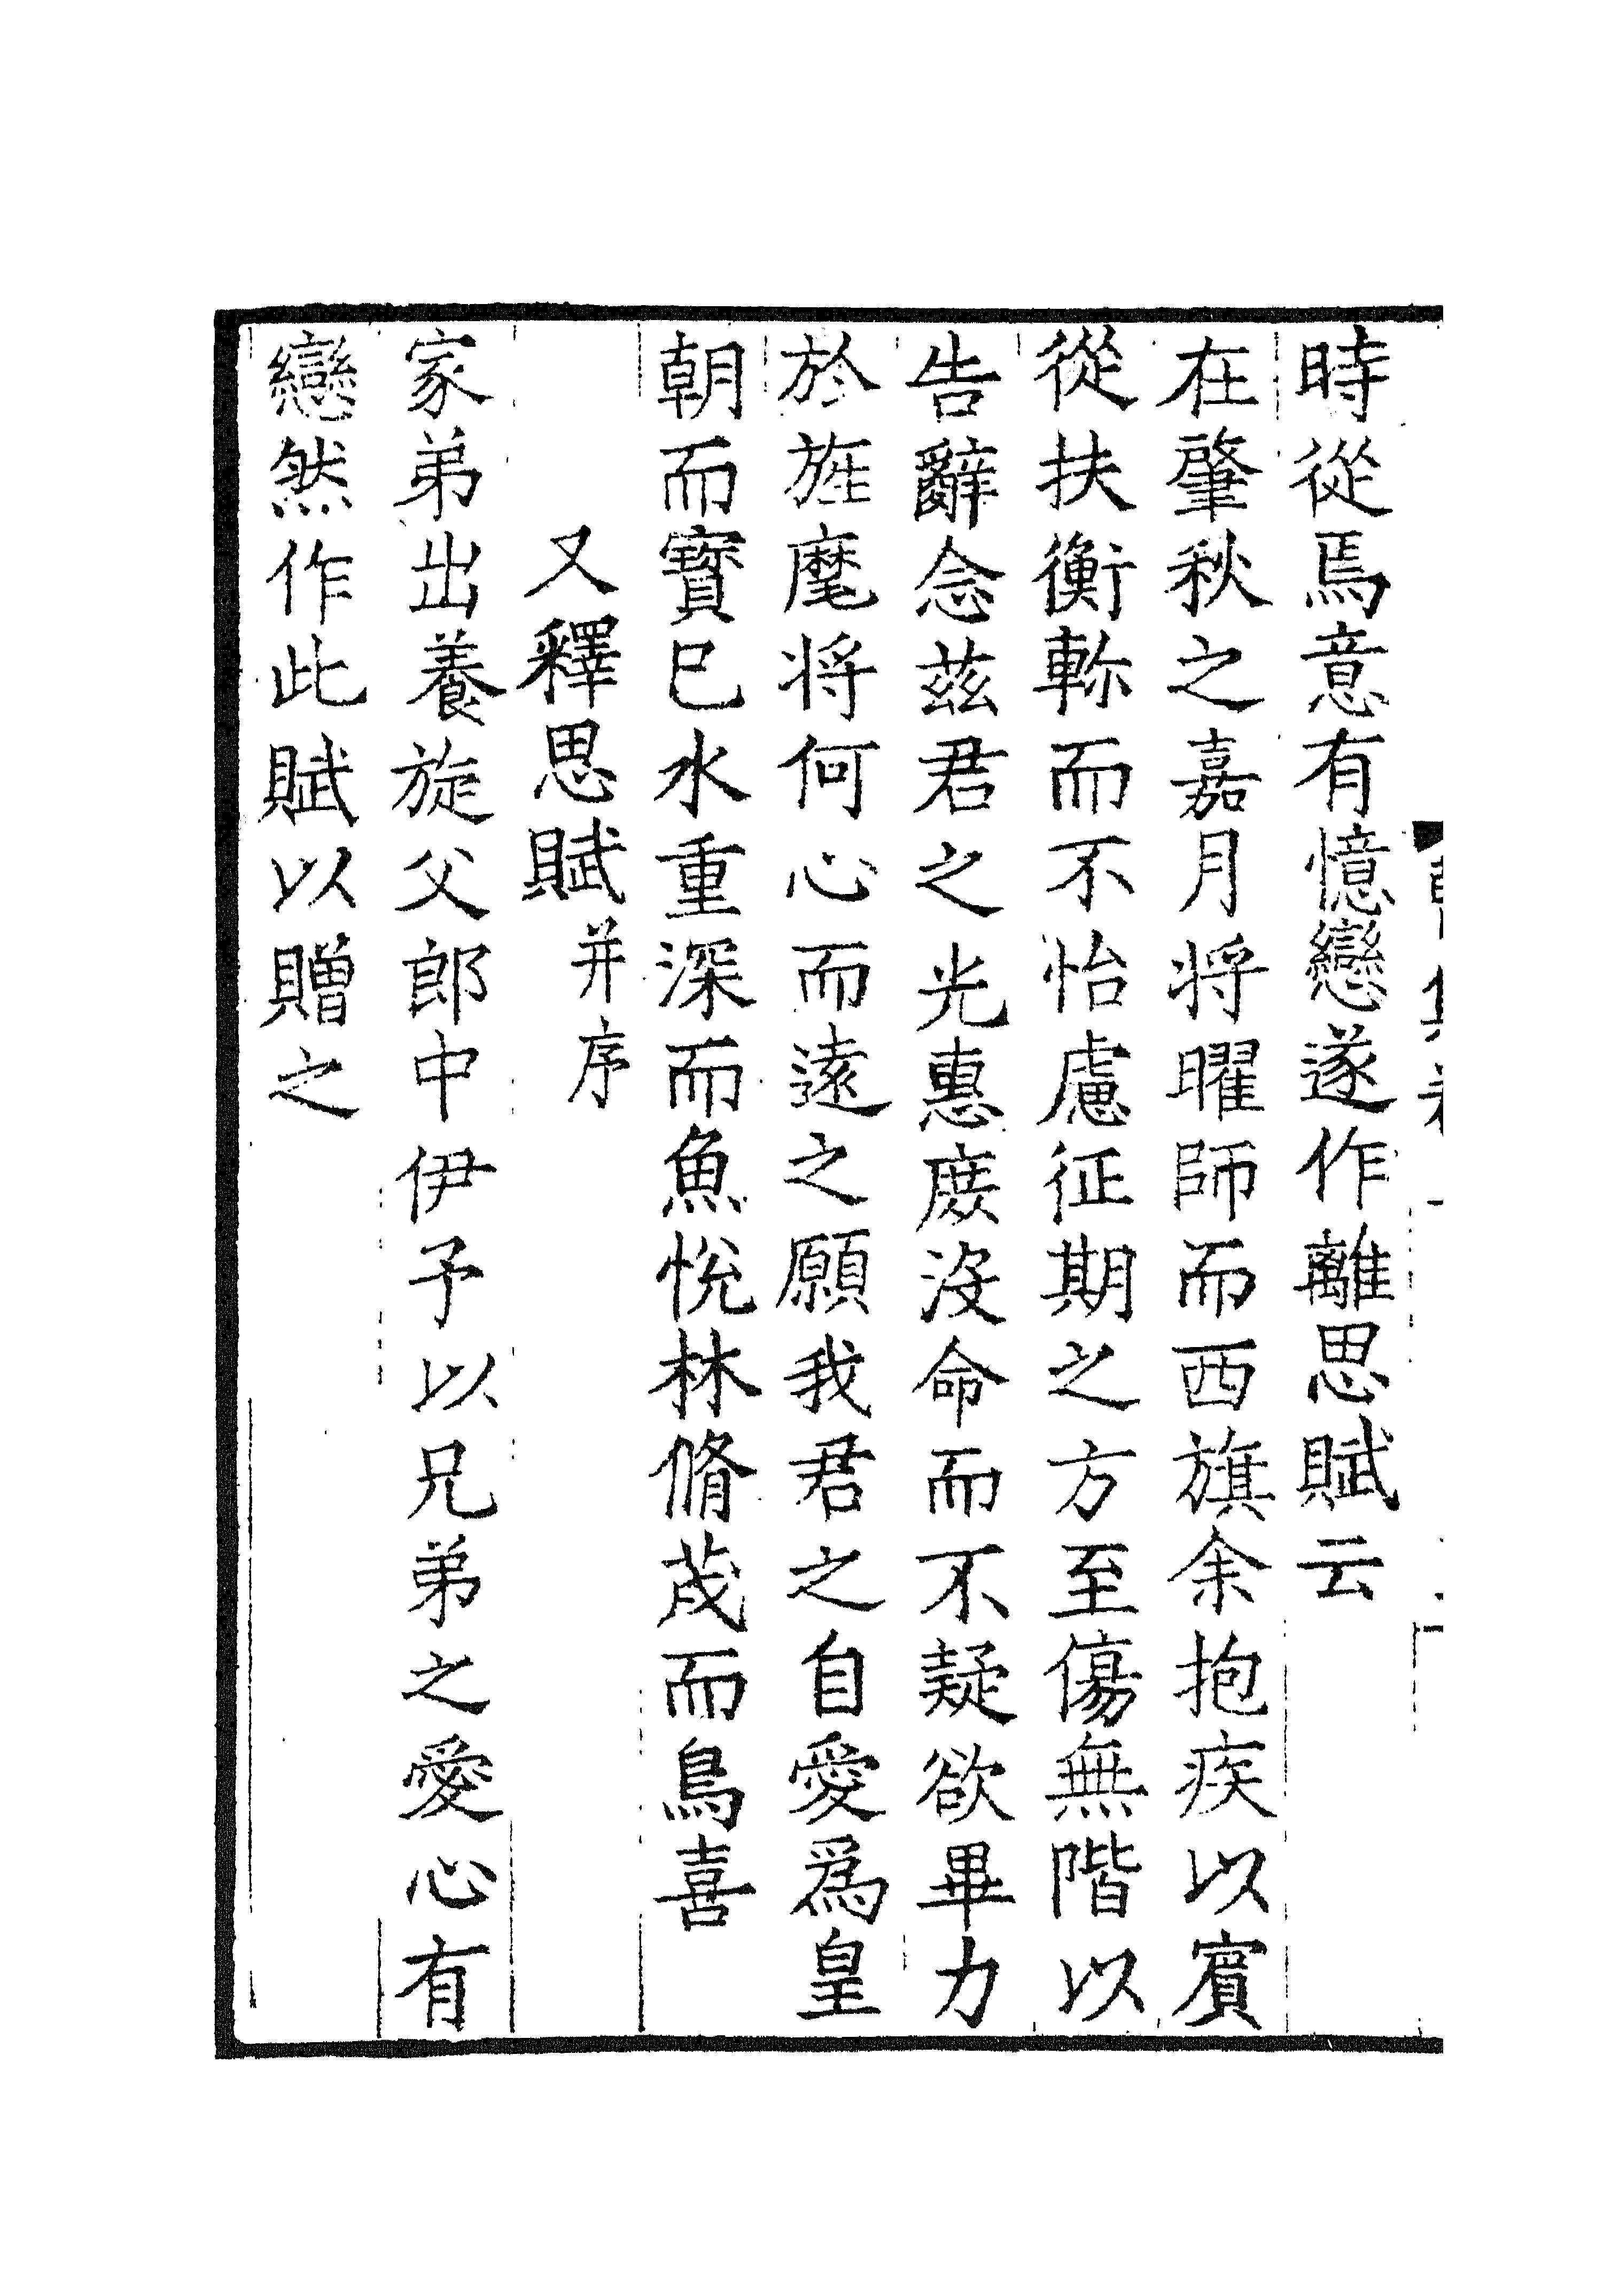 時從焉意有憶戀遂作離思賦云
在肇秋之嘉月将曜師而西旗余抱疾以賔
從扶衡軫而不怡慮征期之方至傷無階以
告辭念茲君之光惠庻沒命而不疑欲畢力
於旌麾将何心而遠之願我君之自愛爲皇
朝而寳巳水重深而魚悅林脩茂而鳥喜
又釋思賦并序
家弟出養族父郎中伊予以兄弟之愛心有
戀然作此賦以贈之